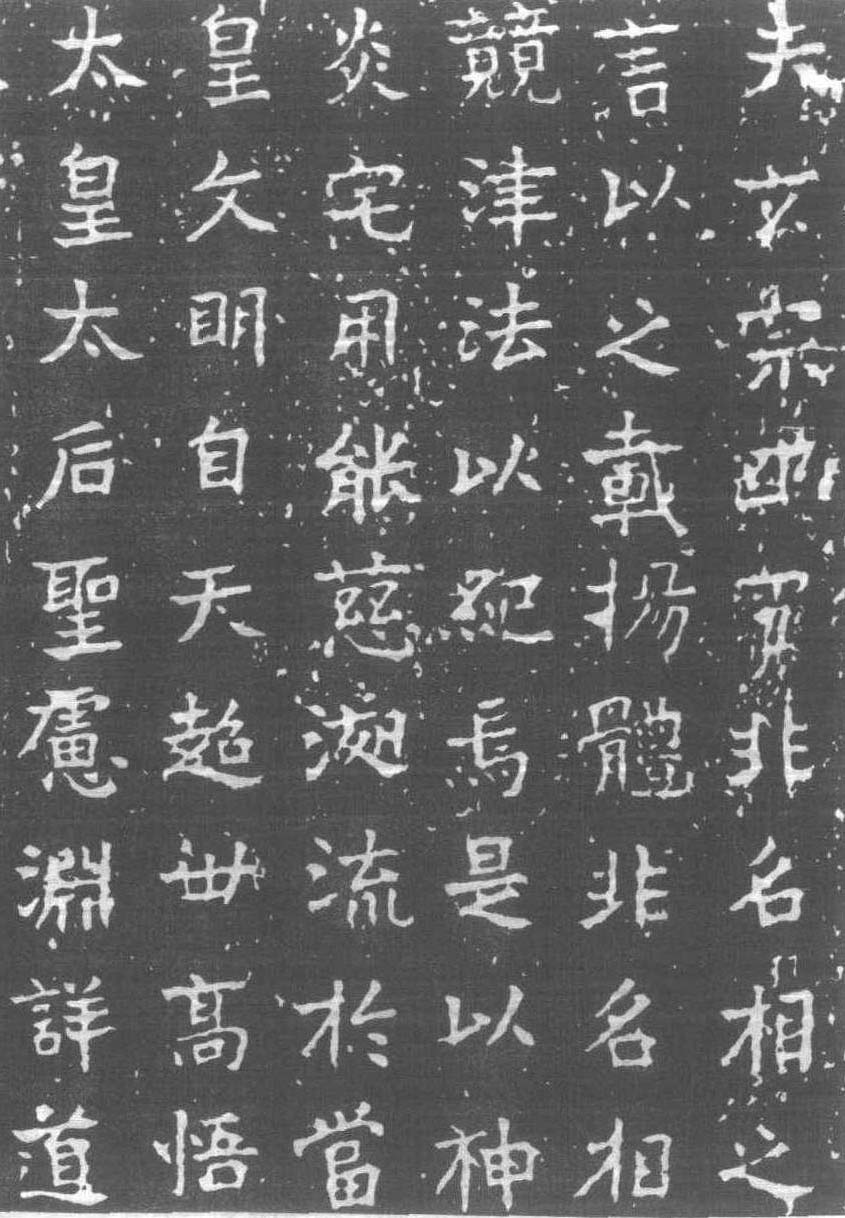 夫玄非名相之
言以之載揚體非名相
競津法以紀焉是以神
炎宅用能慈流於當
皇文明自天超世高悟
太皇太后聖慮淵詳道